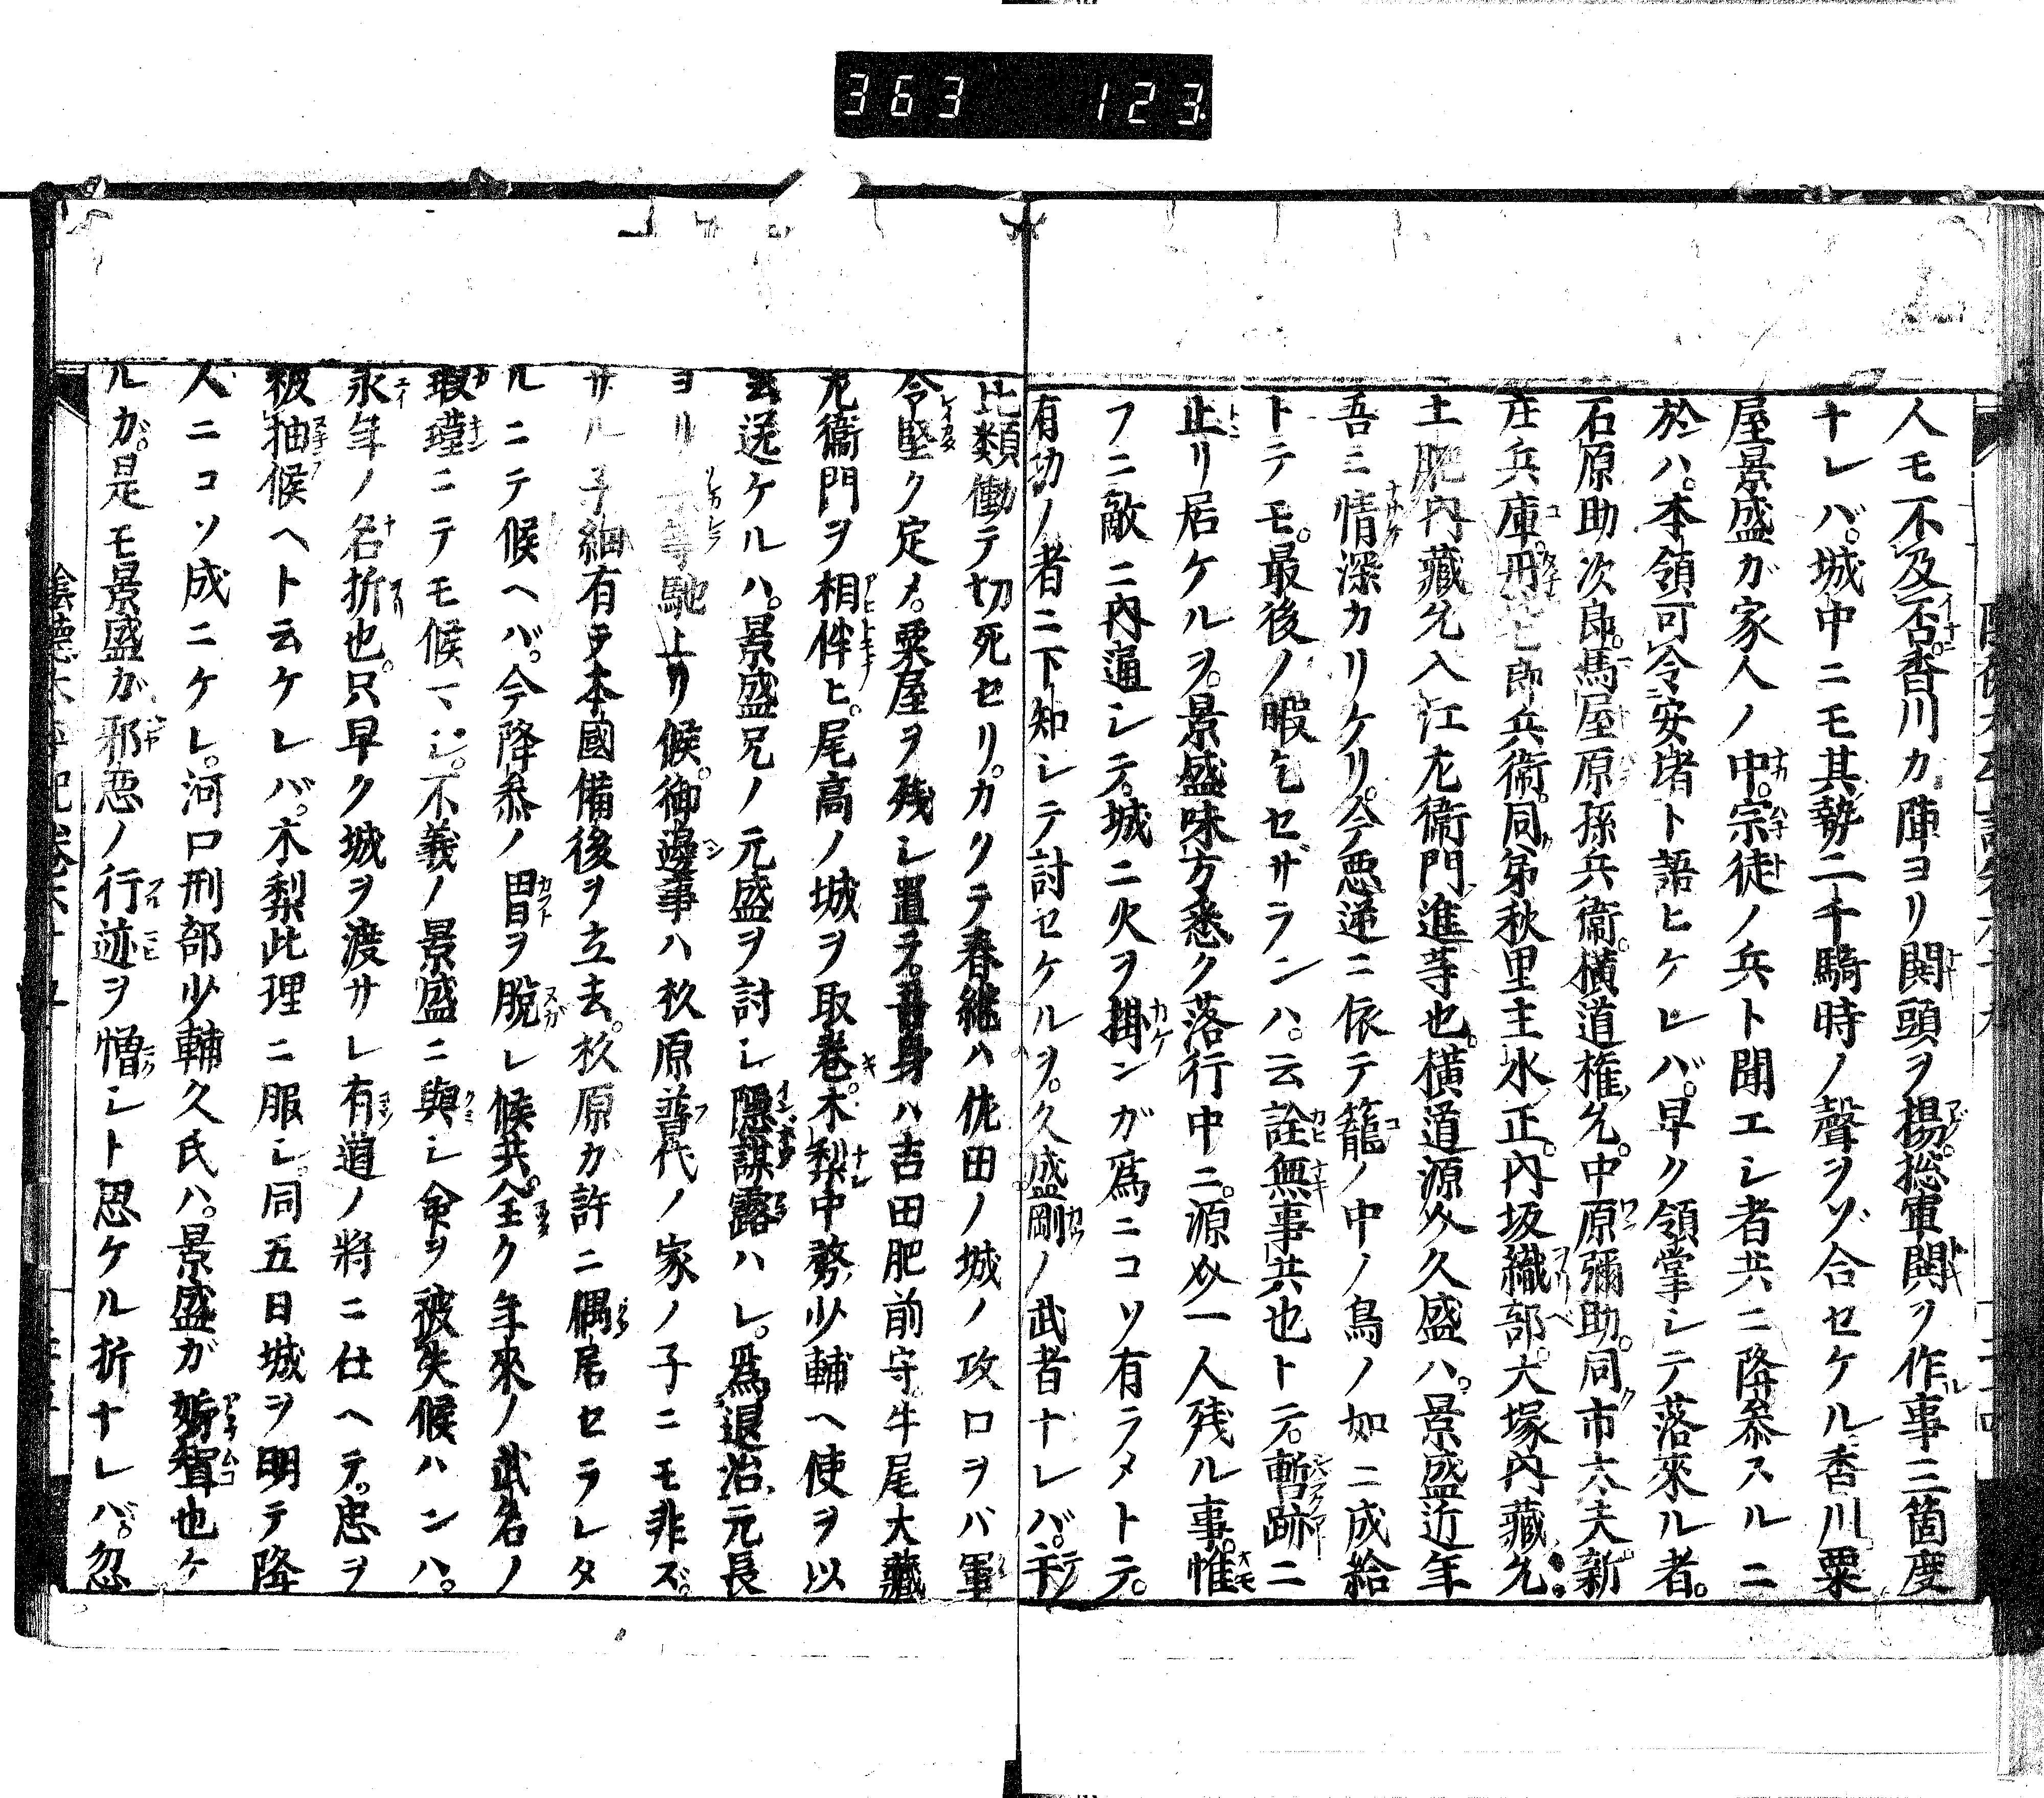 363 123
人モ不及否香川カ陣ヨリ鬨頭ヲ揚。総軍鬨ヲ作事三箇度
ナレバ。城中ニモ其勢二千騎時ノ聲ヲゾ合セケル香川。粟
屋景盛ガ家人ノ中。宗徒ノ兵ト聞エシ者共ニ降参スルニ
於ハ。本領可令安堵ト語ヒケレバ。早ク領掌シテ落來ル者。
石原助次郎。馬屋原孫兵衛。横道權允。中原彌助。同市太夫新
庄兵庫。丹七郎兵衛。同弟秋里主水正。内坂織部。大塚内藏允。
土肥内藏允入江左衛門進等也。横道源久盛ハ。景盛近年
吾ニ情深カリケリ。今悪逆ニ依テ籠ノ中ノ鳥ノ如ニ成給
トテモ。最後ノ暇乞セザランハ。云詮無事共也トテ。暫跡ニ
止リ居ケルヲ。景盛味方悉ク落行中ニ。源一人残ル事。惟
フニ敵ニ内通シテ。城ニ火ヲ掛ンガ爲ニコソ有ラメトテ。
有功ノ者ニ下知シテ討セケルヲ。久盛剛ノ武者ナレバ。手
比類働テ切死セリ。カクテ春継ハ佐田ノ城ノ攻口ヲバ軍
令堅ク定メ。粟屋ヲ残シ置テ。吾身ハ吉田肥前守牛尾大藏
左衛門ヲ相伴ヒ。尾高ノ城ヲ取巻。木梨中務少輔ヘ使ヲ以
云送ケルハ。景盛兄ノ元盛ヲ討シ隠謀露ハレ。爲退治元長
ヨリ等馳上リ候。御邊事ハ杉原普代ノ家ノ子ニモ非ズ。
サル子細有テ本國備後ヲ立去。杉原ガ許ニ偶居セラレタ
ルニテ候ヘバ。今降参ノ冑ヲ脱レ候共。全ク年來ノ武名ノ
瑕瑾ニテモ候マジ。不義ノ景盛ニ與シ命ヲ被失候ハンハ。
永年ノ名折也。只早ク城ヲ渡サレ有道ノ將ニ仕ヘテ。忠ヲ
被抽候ヘト云ケレバ。木梨此理ニ服シ。同五日城ヲ明テ降
人ニコソ成ニケレ。河口刑部少輔久氏ハ。景盛ガ姉聟也ケ
ルガ。是モ景盛ガ邪悪ノ行迹ヲ憎シト思ケル折ナレバ。忽